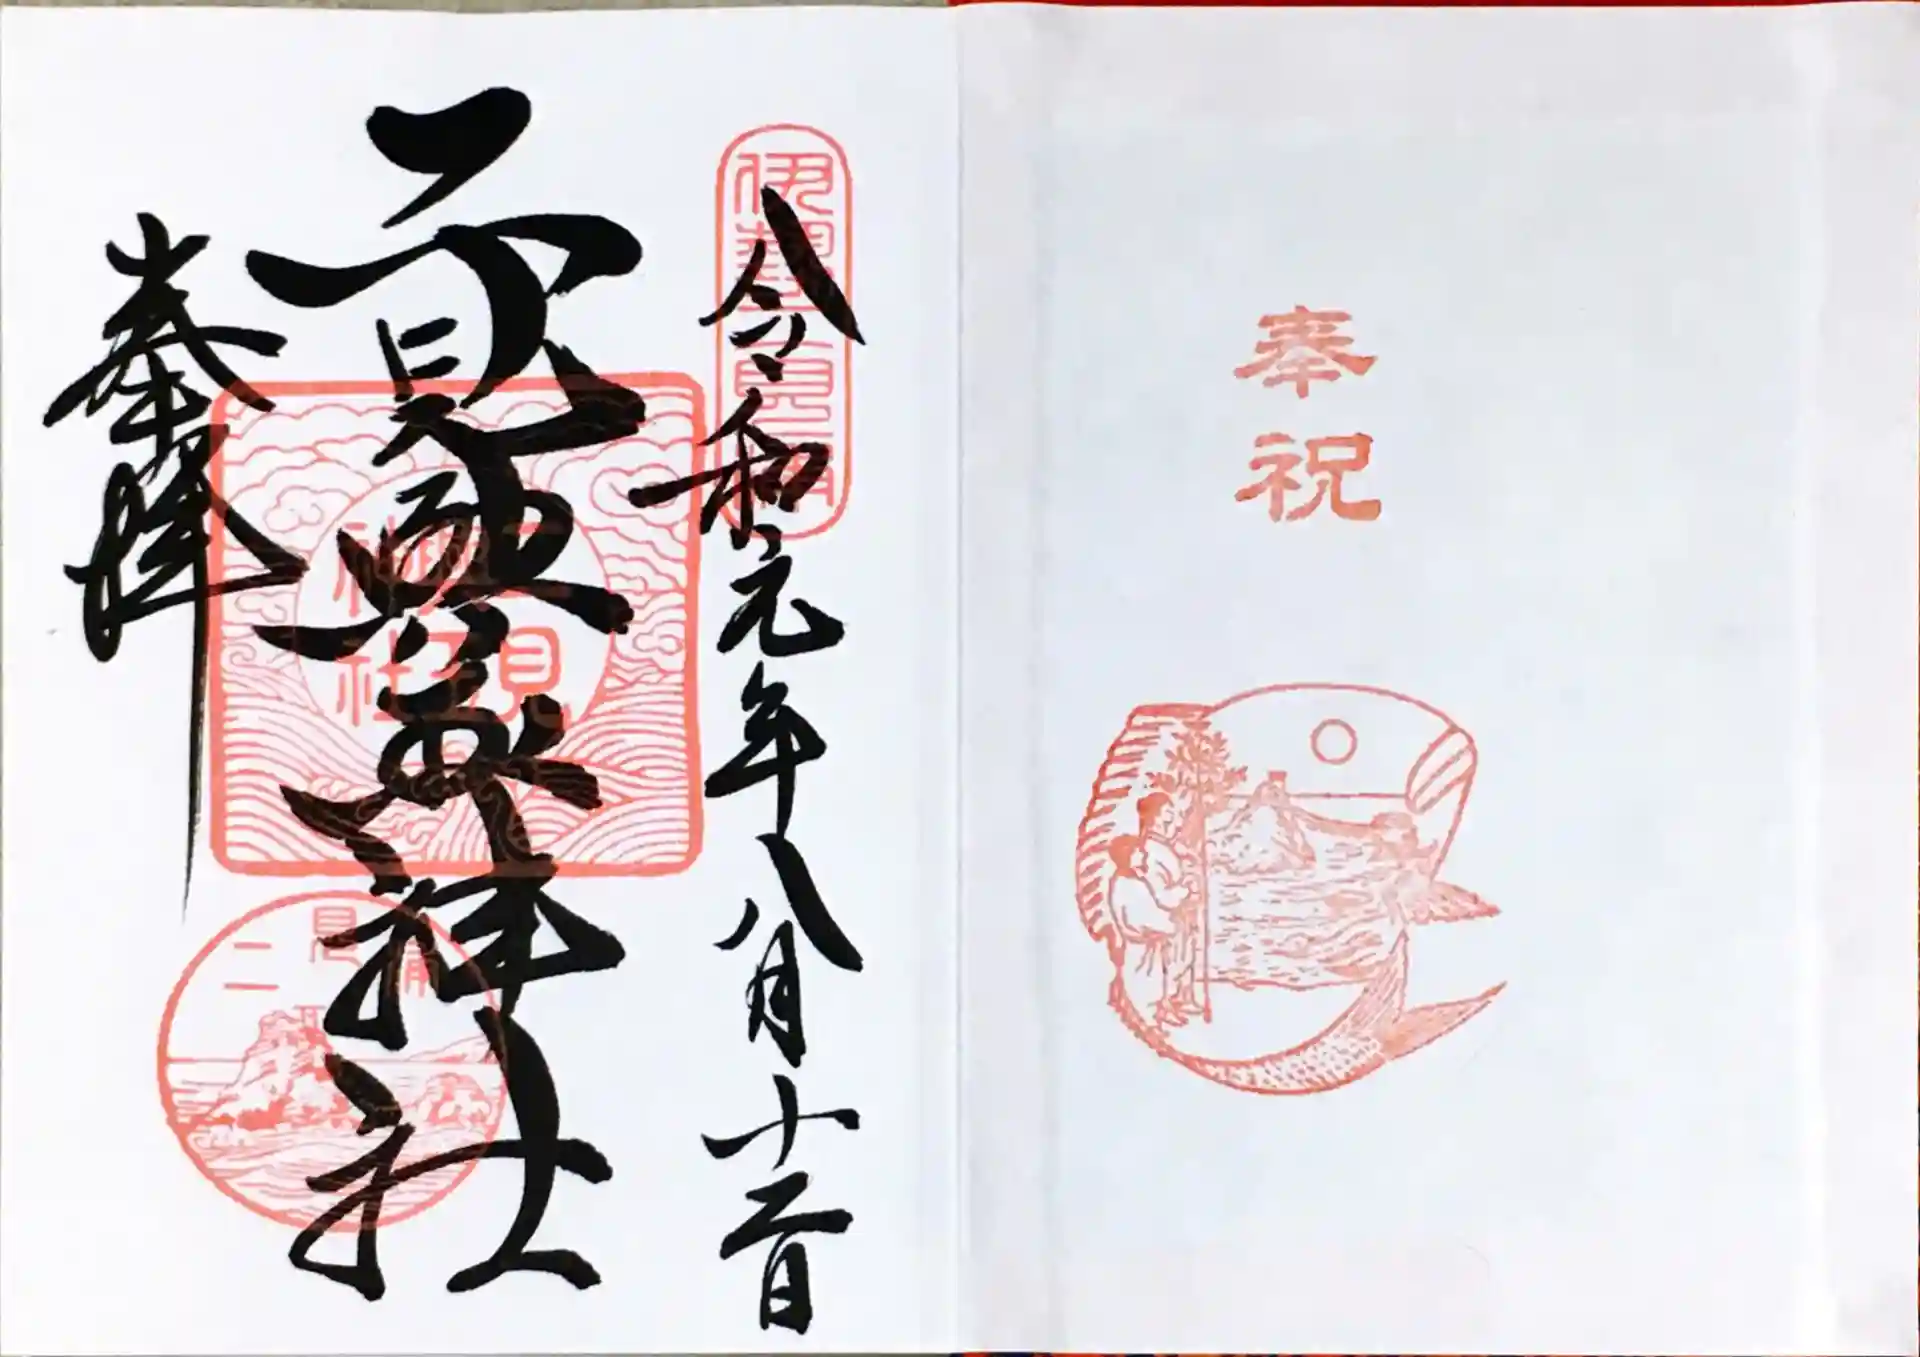 奉祝
伊勢二見浦
令和元年八月十二日
二見興玉神社
二見
興玉
神社
二見浦
奉拝